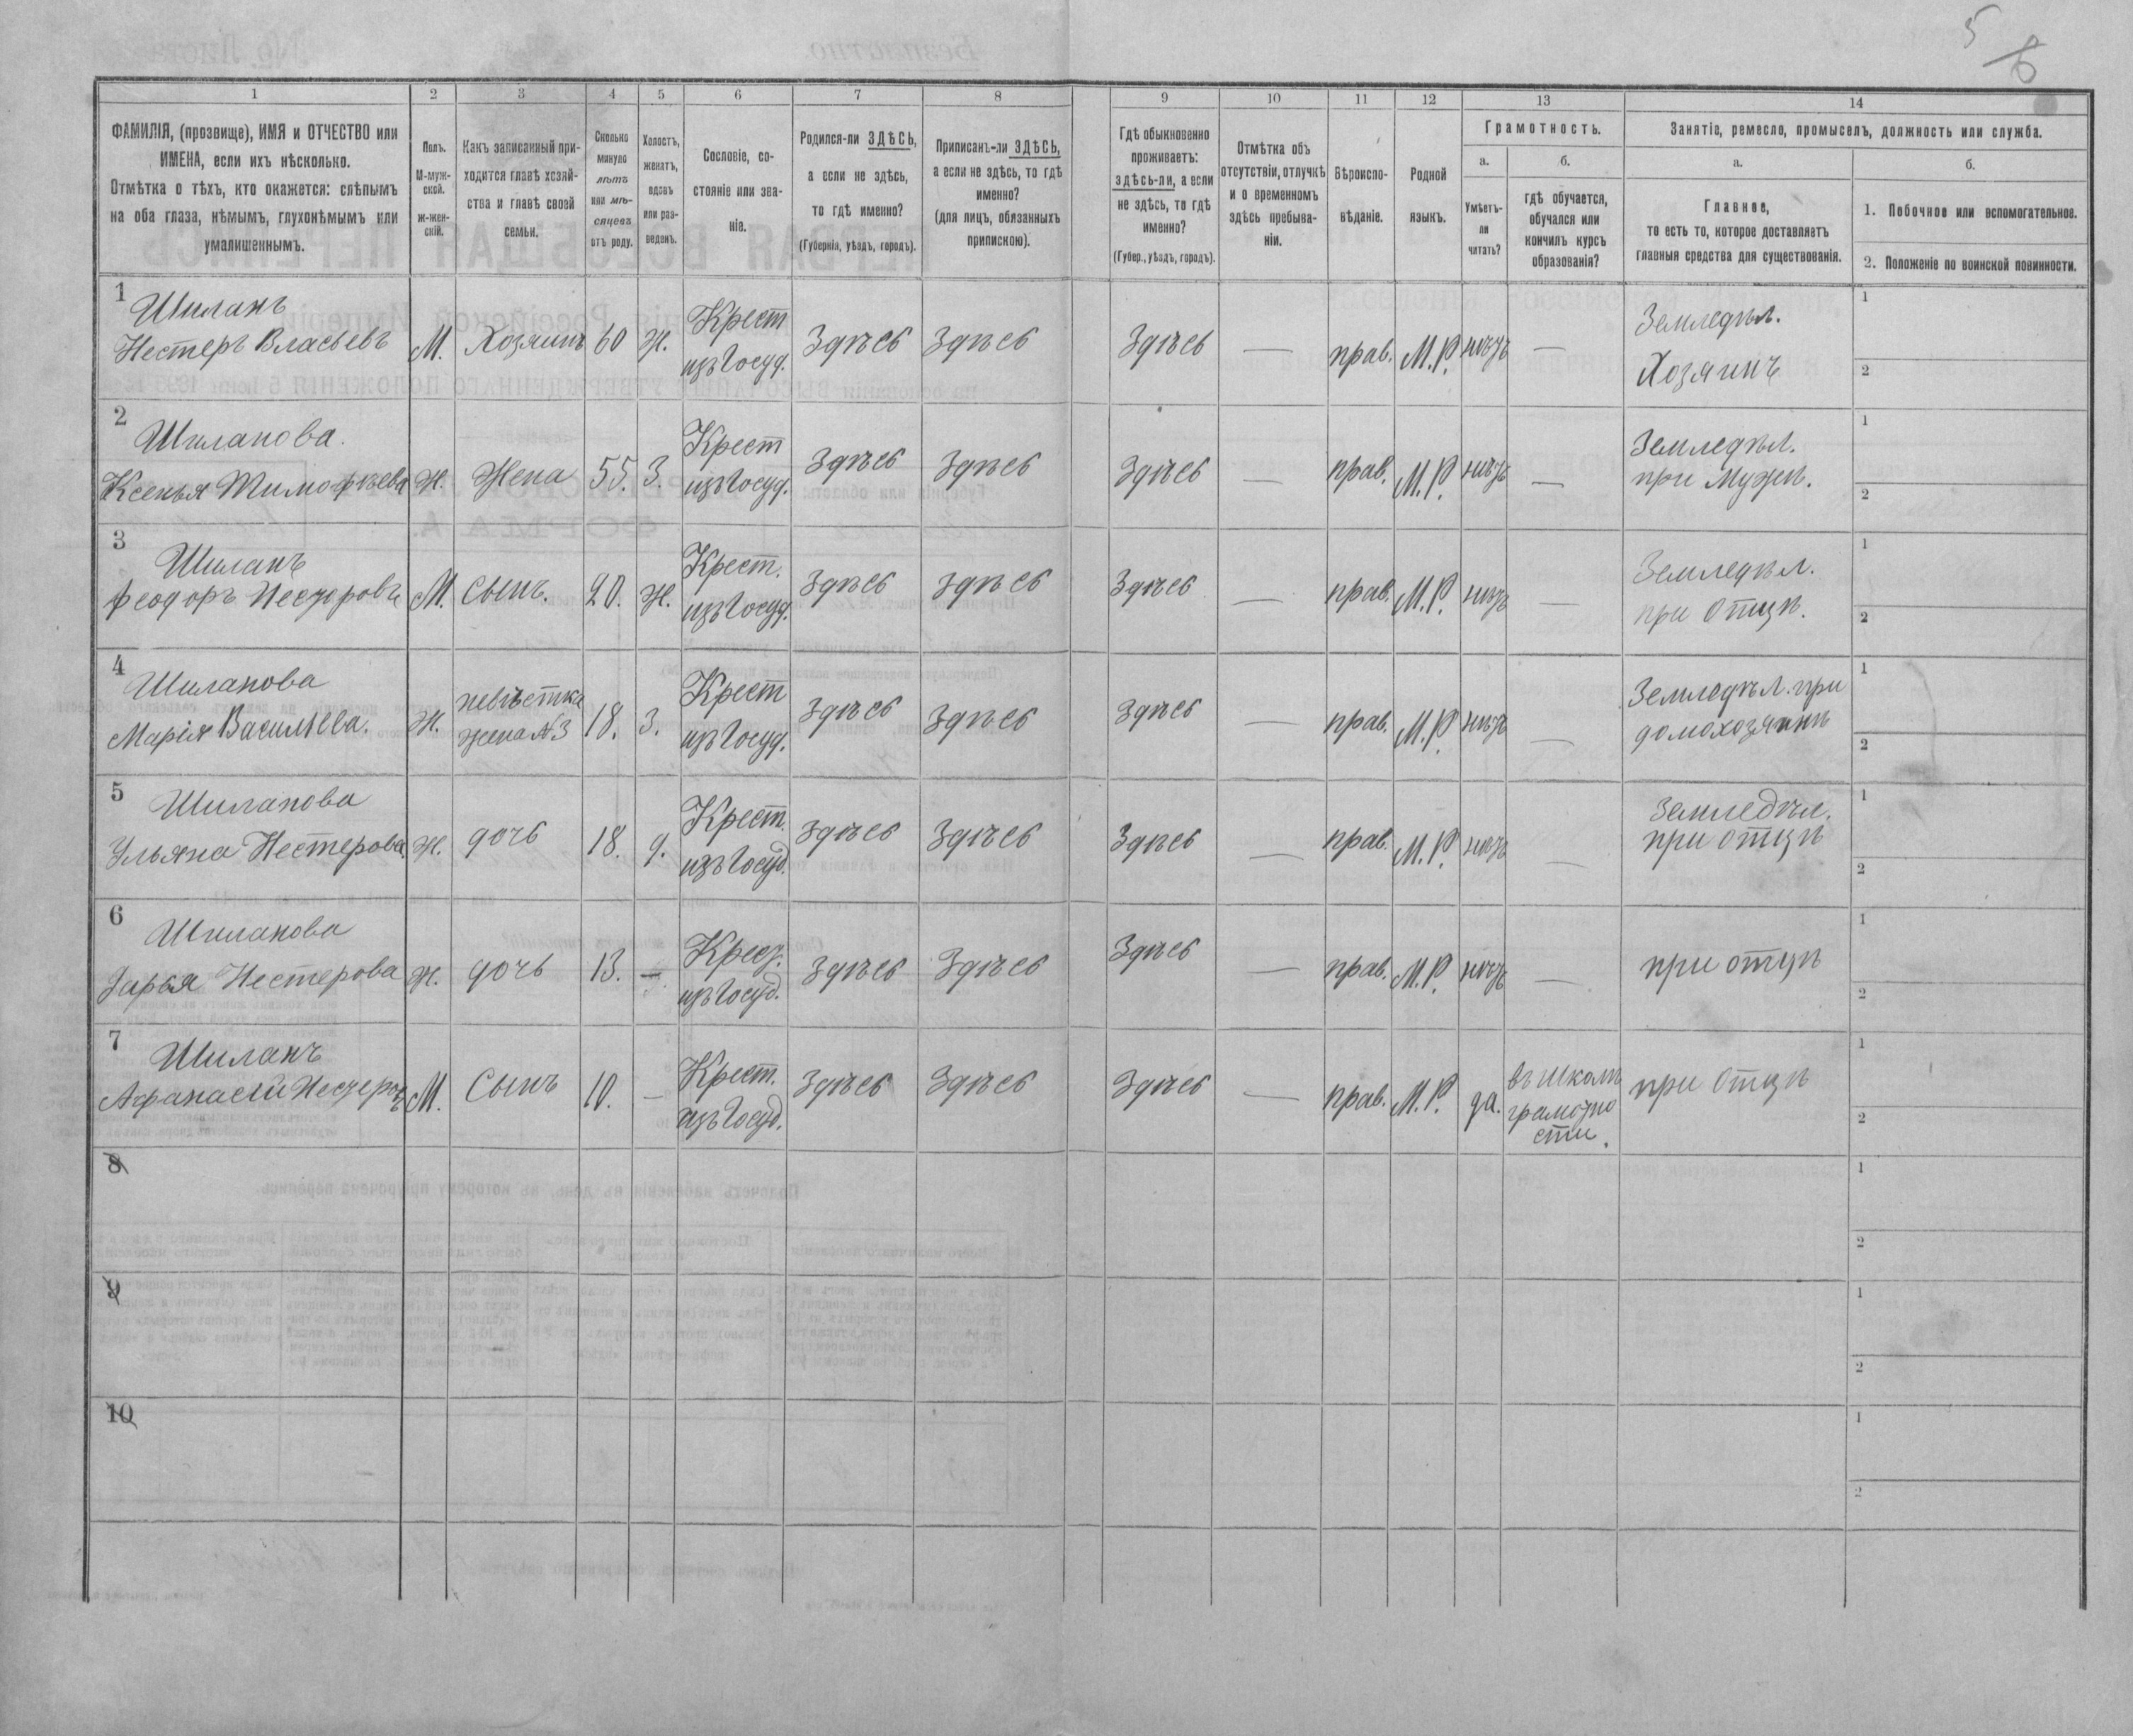 5
6
1
2
3
4
5
6
7
8
9
10
11
12
13
14
ФАМИЛІЯ, (прозвище), ИМЯ и ОТЧЕСТВО или
ИМЕНА, если ихъ нѣсколько.
Отмѣтка о тѣхъ, кто окажется: слѣпымъ
на оба глаза, нѣмымъ, глухонѣмымъ или
умалишеннымъ.
Полъ.
М-муж-
ской.
Ж-жен-
скій.
Какъ записанный при-
ходится главѣ хозяй-
ства и главѣ своей
семьи.
Сколько
минуло
лѣтъ
или мѣ-
сяцевъ
отъ роду.
Холостъ,
женатъ,
вдовъ
или раз-
веденъ.
Сословіе, со-
стояніе или зва-
ніе.
Родился-ли ЗДѢСЬ,
а если не здѣсь,
то гдѣ именно?
(Губернія, уѣздъ, городъ).
Приписанъ-ли ЗДѢСЬ,
а если не здѣсь, то гдѣ
именно?
(для лицъ, обязанныхъ
припискою).
Гдѣ обыкновенно
проживаетъ:
здѣсь-ли, а если
не здѣсь, то гдѣ
именно?
(Губер., уѣздъ, городъ).
Отмѣтка объ
отсутствіи, отлучкѣ
и о временномъ
здѣсь пребыва-
ніи.
Вѣроиспо-
вѣданіе.
Родной
языкъ.
Грамотность.
а.
Умѣетъ-
ли
читать?
б.
гдѣ обучается,
обучался или
кончилъ курсъ
образованія?
Занятіе, ремесло, промыселъ, должность или служба.
а.
Главное,
то есть то, которое доставляетъ
главныя средства для существованія.
б.
1. Побочное или вспомогательное.
2. Положеніе по воинской повинности.
1
Шиланъ
Нестеръ Власьевъ
М.
Хозяинъ
60
Ж.
Крест
изъ Госуд.
Здѣсь
Здѣсь
Здѣсь
—
прав.
М.Р.
нѣтъ
—
Земледѣл.
Хозяинъ
1
2
2
Шиланова.
Ксенья Тимофѣева
Ж.
Жена
55.
З.
Крест
изъ Госуд.
Здѣсь
Здѣсь
Здѣсь
—
прав.
М.Р.
нѣтъ
—
Земледѣл.
при Мужѣ.
1
2
3
Шиланъ
Феодоръ Несторовъ
М.
Сынъ.
20.
Ж.
Крест.
изъ Госуд.
Здѣсь
Здѣсь
Здѣсь
—
прав.
М.Р.
нѣтъ
—
Земледѣл.
при Отцѣ.
1
2
4
Шиланова
Марія Васильева.
Ж.
невѣстка
жена №3
18.
З.
Крест
изъ Госуд.
Здѣсь
Здѣсь
Здѣсь
—
прав.
М.Р.
нѣтъ
—
Земледѣл. при
домохозяинѣ
1
2
5
Шиланова
Ульяна Нестерова.
Ж.
дочь
18.
д.
Крест.
изъ Госуд.
Здѣсь
Здѣсь
Здѣсь
—
прав.
М.Р.
нѣтъ
—
Земледѣл.
при отцѣ
1
2
6
Шиланова
Дарья Нестерова
Ж.
дочь
13.
—
Крест.
изъ Госуд.
Здѣсь
Здѣсь
Здѣсь
—
прав.
М.Р.
нѣтъ
—
при отцѣ
1
2
7
Шиланъ
Афанасій Нестеровъ
М.
Сынъ
10.
—
Крест.
изъ Госуд.
Здѣсь
Здѣсь
Здѣсь
—
прав.
М.Р.
да.
въ школѣ
грамотно
сти.
при Отцѣ
1
2
8
1
2
9
1
2
10
1
2